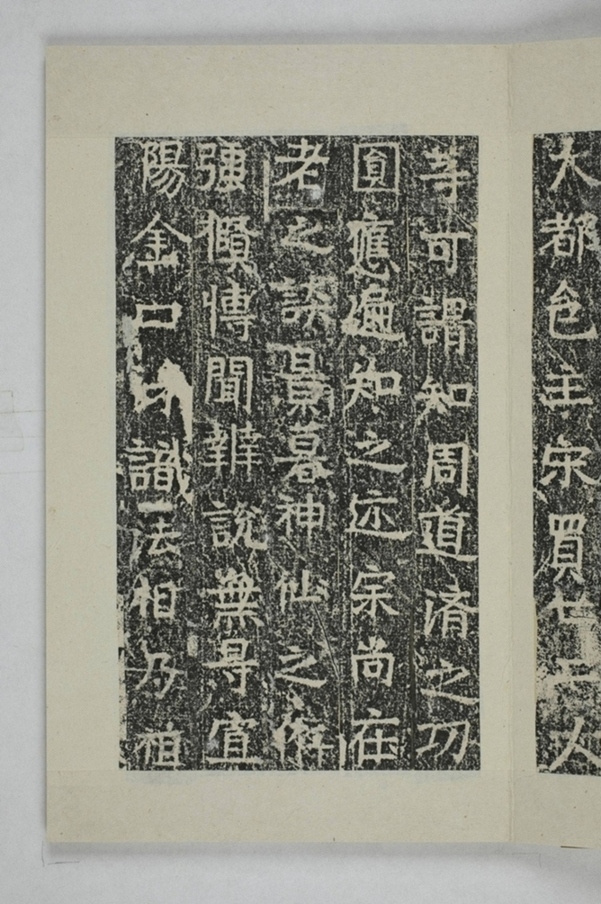 大都邑主宋買廿二人
等可謂知周道濟之功
圓應遍知之迹宗尚莊
老之談景慕神仙之術
彊傾博聞辨說無㝵宣
陽金口 識法相乃祖